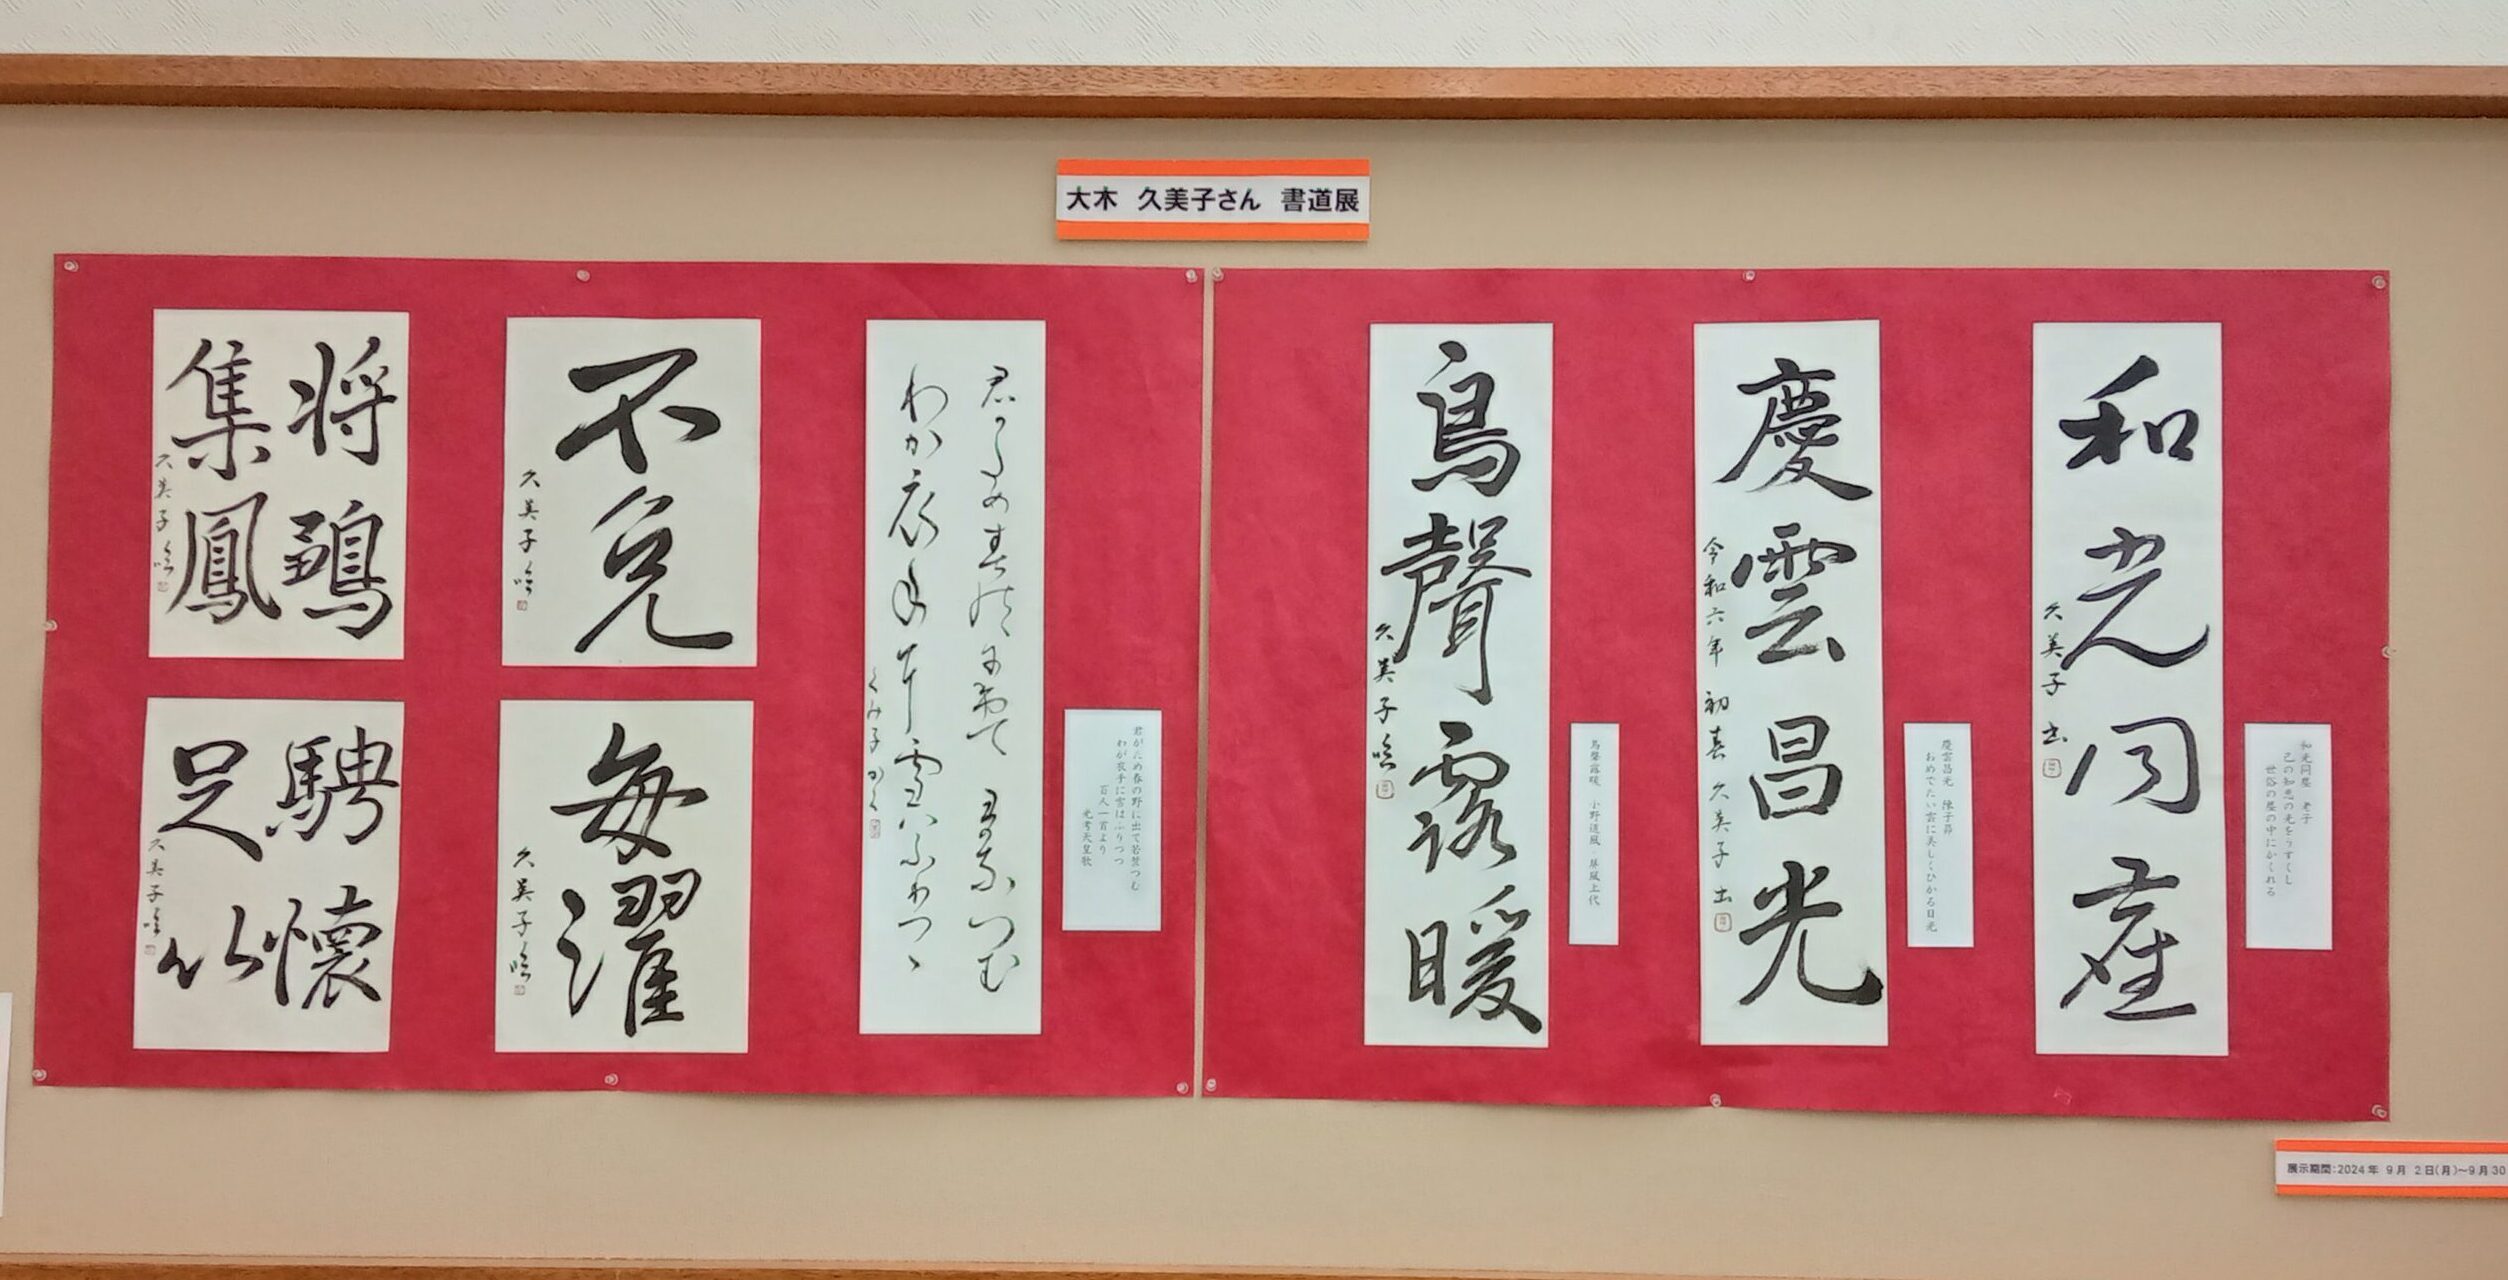 大木 久美子さん 書道展
和光同塵
久美子 出
和光同塵 老子
己の知恵の光をうすくし
世俗の塵の中にかくれる
慶雲昌光
令和六年 初春 久美子 出
慶雲昌光 陳子昴
おめでたい雲に美しくひかる日光
鳥聲露暖
久美子
鳥聲露暖 小野道風 屏風上代
君がため春の野に出て若菜つむ
わが衣手に雪はふりつつ
百人一首より
光孝天皇歌
わか衣手耳雪ハふりつゝ
くみ子 かく
不免
久美子
毎濯
久美子
将鵄
集鳳
久美子
騁懐
足以
久美子
展示期間:2024年 9月 2日(月)~9月30